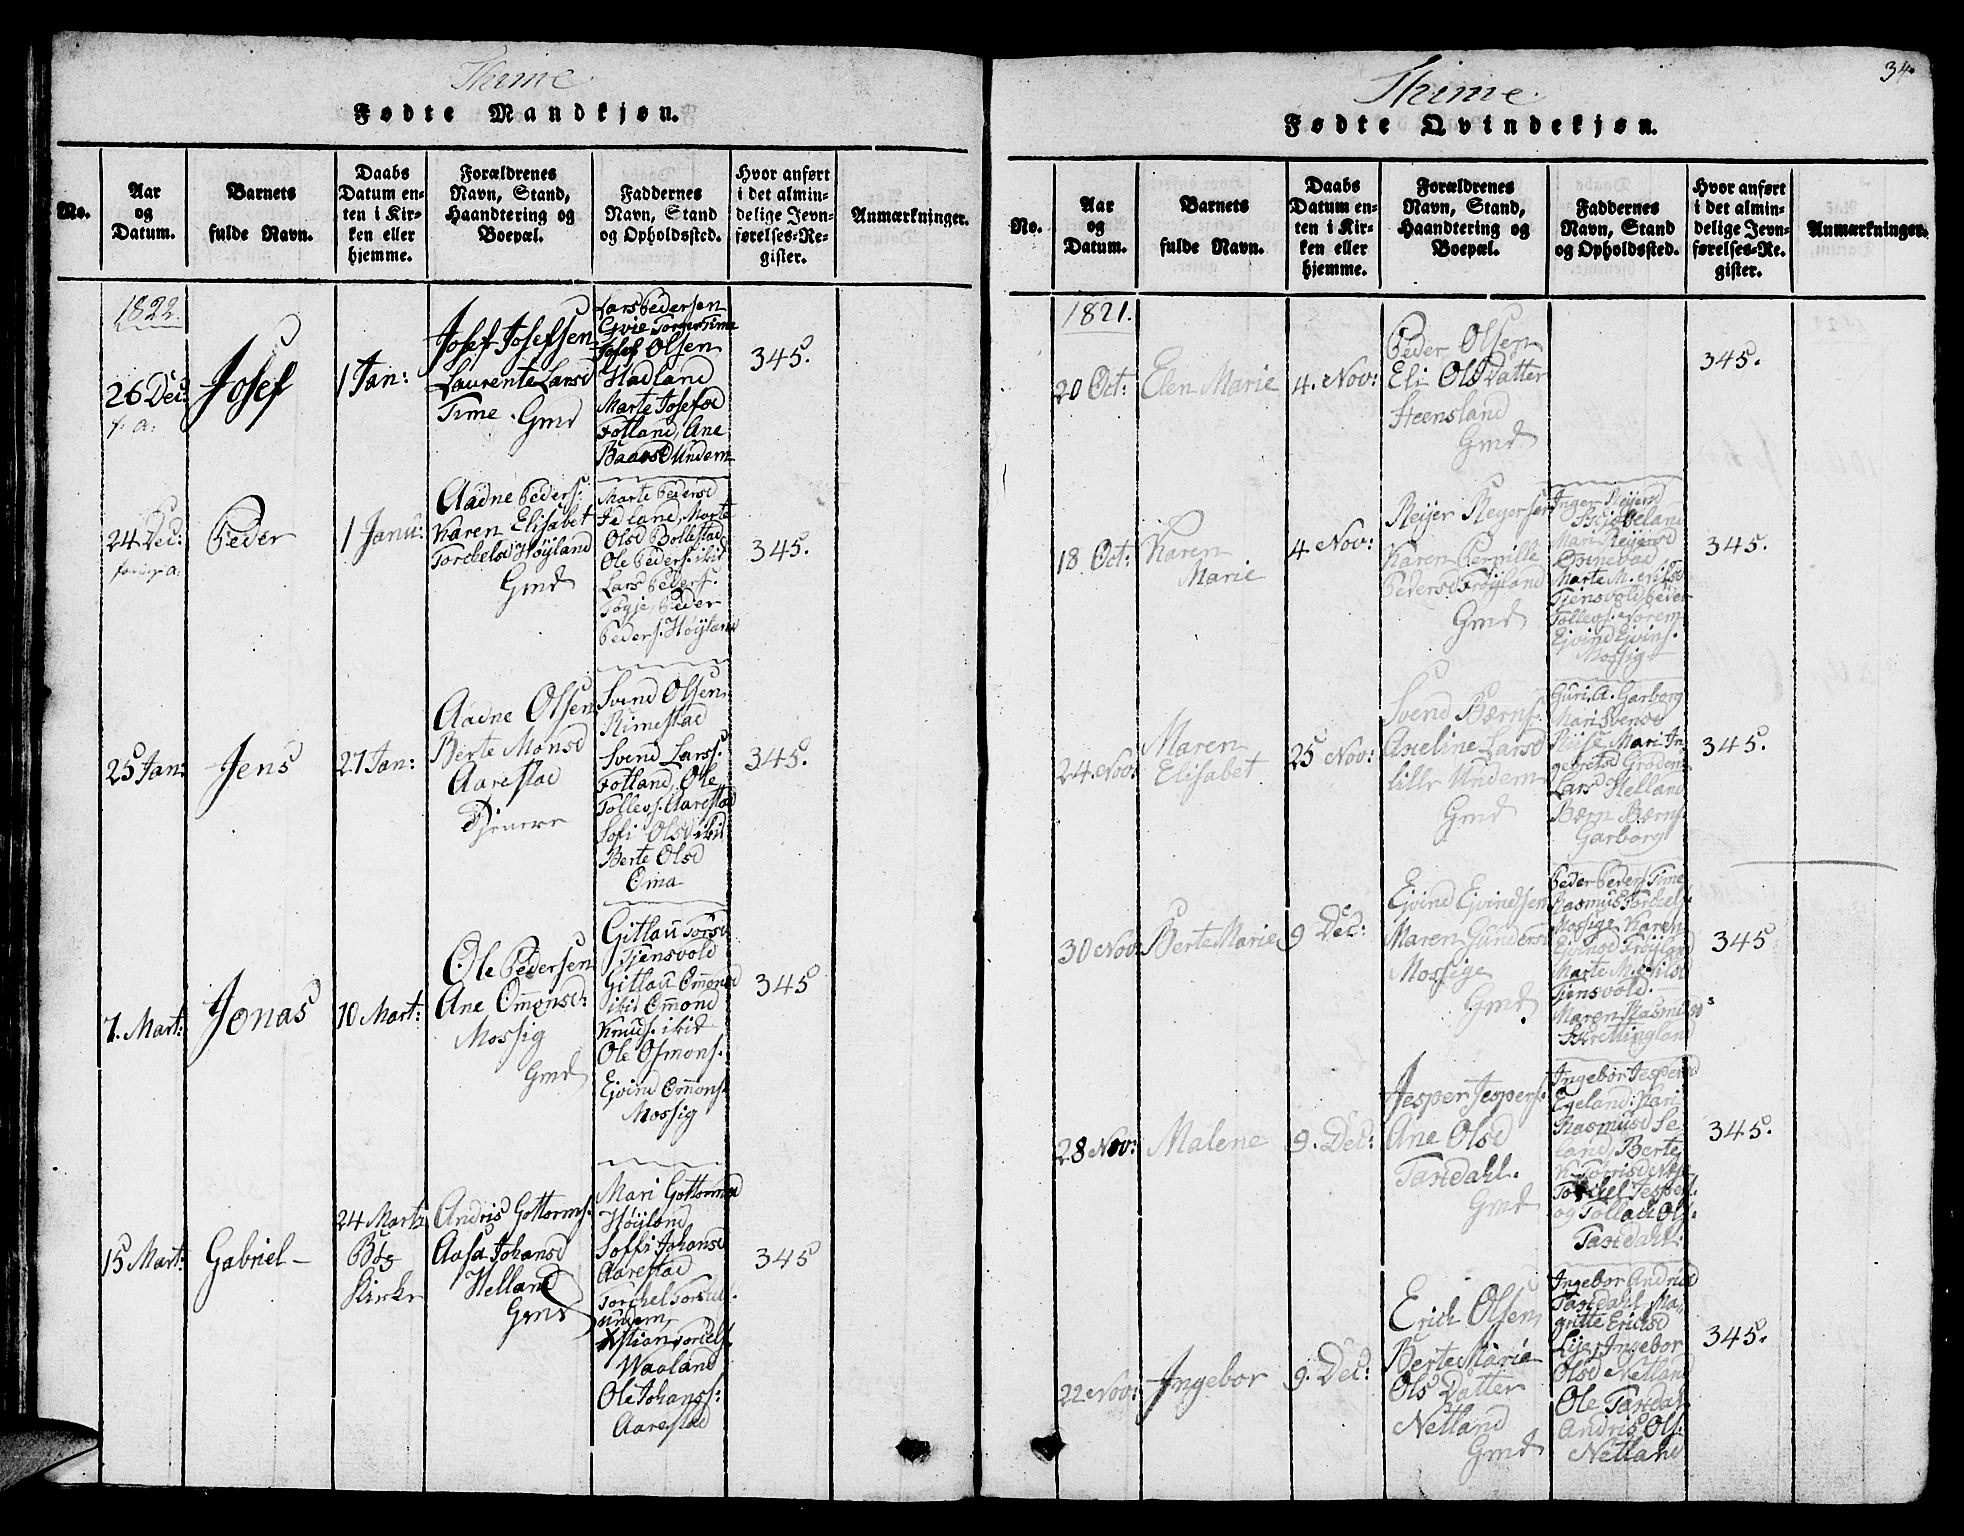 Thime
Fødte Mandkjøn.
No.
Aar
og
Datum.
Barnets
fulde Navn.
Daabs
Datum en-
ten i Kir-
ken eller
hjemme.
Forældrenes
Navn, Stand,
Haandtering og
Boepæl.
Faddernes
Navn, Stand
og Opholdssted.
Hvor anført
i det almin-
delige Jevn-
førelses-Re-
gister.
Anmærkninger.
1822.
26 Dec:
f. a:
Josef
1 Jan:
Josef Josefsen
Laurente Larsd
Time. Gmd
Lars Pedersen
Time
Josef Olsen
Hadland
Marte Josefsd
Fotland, Ane
Undem
345.
24 Dec:
Peder
1 Janu:
Aadne Peders:
Karen Elisabet
Torchelsd Høyland
Gmd
Marte Pedersd
Marte
Olsd Bollestad
Ole Peders. ibid
Lars Peders.
Peder
Peders. Høyland
345.
25 Jan:
Jens
27 Jan:
Aadne Olsen
Berte Monsd
Aarestad
Tjenere
Svend Olsen
Rimestad
Svend Larss.
Fotland, Ole
Tollevs. Aarestad
Sofi Olsd ibid
Berte Olsd
345.
7. Mart:
Jonas
10 Mart:
Ole Pedersen
Ane Om̄onsd:
Mossig
Gmd
Gitlau Torsd
Tjensvold
Gitlau Om̄onsd
ibid Om̄ond
Knuds. ibid
Ole Osmons.
Ejvind Om̄ons.
Mossig
345
15 Mart:
Gabriel
24 Marts
Bøe
Kirke
Andris Gottorms:
Aasa Johansd
Helland
Gmd
Mari Gottormsd
Høyland
Soffi Johansd
Aarestad
Torchel Torchels.
undem
Xstian Torchels.
Waaland
Ole Johanss:
Aarestad
345
34.
Thime
Fødte Qvindekjøn.
No.
Aar
og
Datum.
Barnets
fulde Navn.
Daabs
Datum en-
ten i Kir-
ken eller
hjemme.
Forældrenes
Navn, Stand,
Haandtering og
Boepæl.
Faddernes
Navn, Stand
og Opholdssted.
Hvor anført
i det almin-
delige Jevn-
førelses-Re-
gister.
Anmærkninger.
1821.
20 Oct:
Elen Marie
4. Nov:
Peder Olsen
Eli Ols Datter
Steensland
Gmd
345.
18 Oct:
Karen
Marie
4. Nov:
Reijer Reyersen
Karen Pernille
Pedersd Frøyland
Gmd
Inger Reijersd
Mari Reijersd
Marte M.
Tjensvold Peder
Tollevs. Norem
Ejvind Ejvins.
Mossig
345.
24. Nov:
Maren
Elisabet
25 Nov:
Svend Bærns.
Axeline Larsd
lille Undem
Gmd
Guri A. Garborg
Mari Svensd
Mari In-
gebretsd Groden
Lars Helland
Bærn Bærns
Garborg
345.
30 Nov:
Berte Marie
9 Dec:
Ejvind Ejvindsen
Maren Gundersd
Mossige
Gmd
Peder Peders Time
Rasmus Torchels.
Mossige Karen
Ejvinsd Frøyland
Marte M.
Tjensvold.
Maren Rasmusd
Skrettingland
345
28 Nov:
Malene
9. Dec:
Jesper Jespers.
Ane Olsd
Taxdahl.
Gmd
Ingebor Jespersd
Egeland. Kari
Rasmusd Se-
land, Berte
Torchel Jespers.
og Tollach Ols.
Taxdahl.
345.
22 Nov:
Ingebor
9. Dec:
Erich Olsen
Berte Maria
Ols Datter
Netland
Gmd
Ingebor Andrisd
Taxdahl Ma-
gritte Erichsd
Lye, Ingebor
Olsd Netland
Ole Taxdal
Andris Ols.
Netland
345.